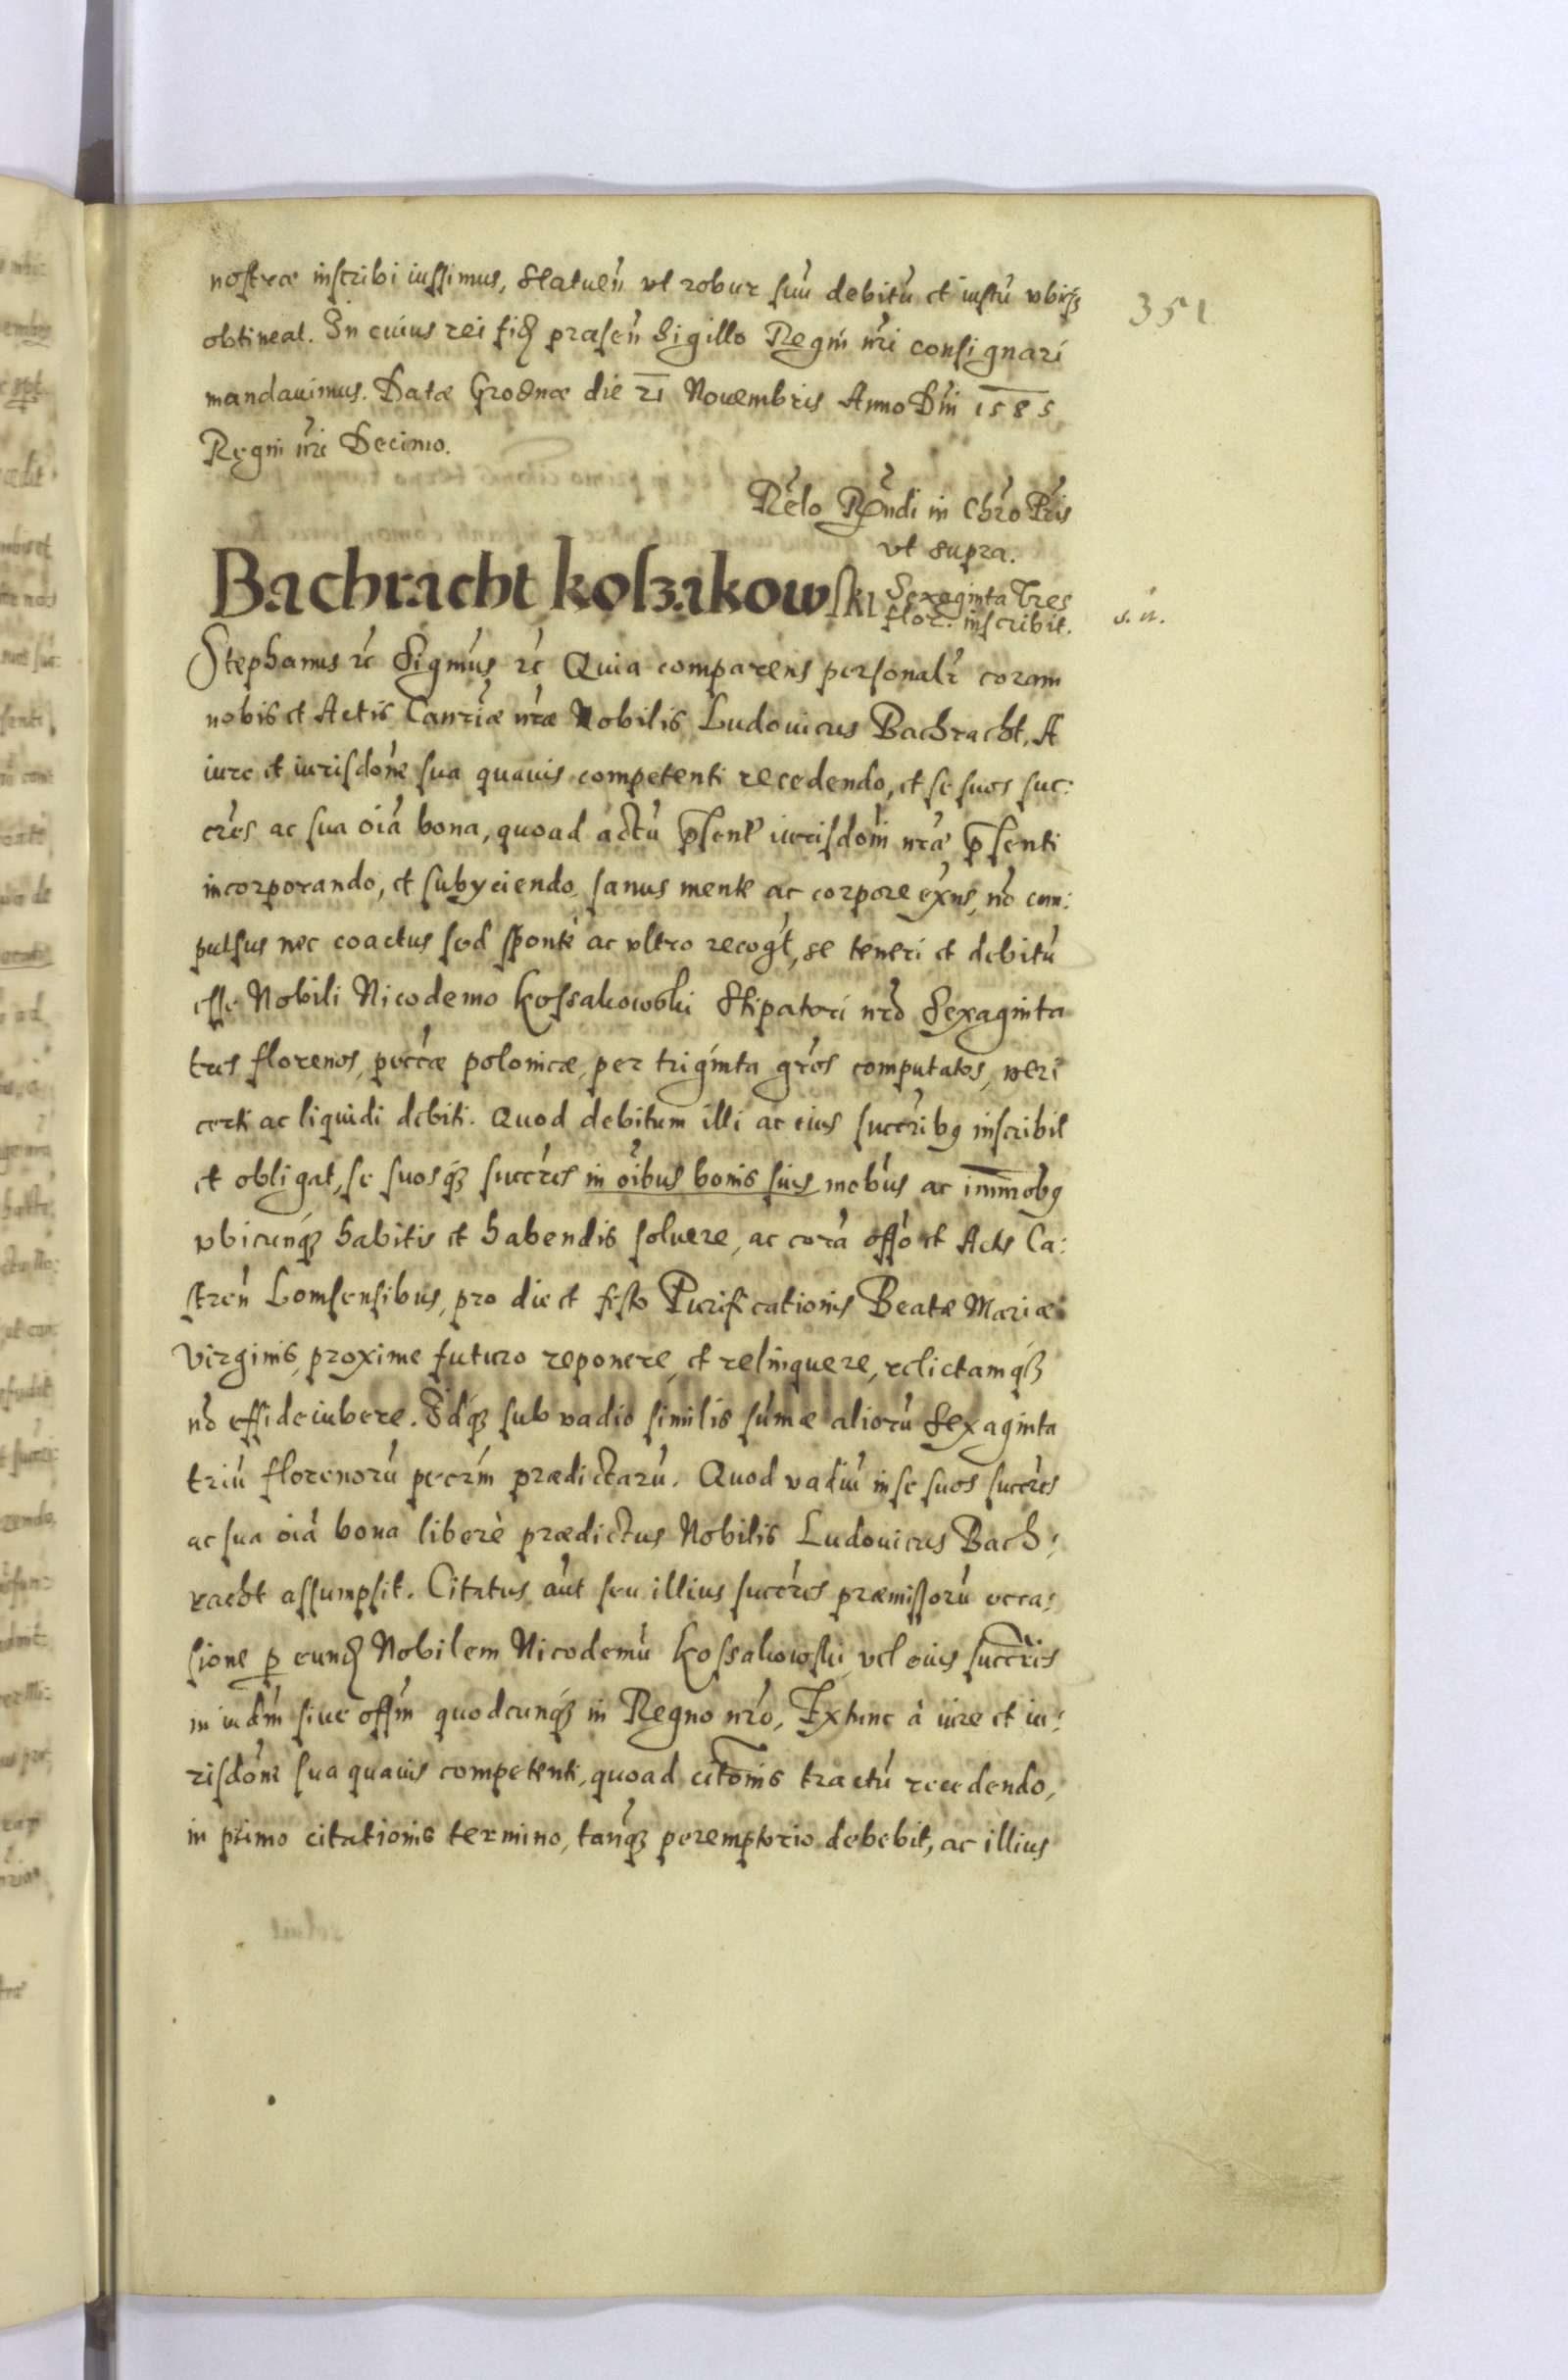 nostræ inscribi iussimus, Statueñ vt robur suũ debitũ et iustũ vbiq₃
351
obtineat. In cuius rei fid præsen̄ Sigillo Regni nr̃i consignari
mandauimus. Datæ Grodnæ die 21 Nouembris Anno Dñi 1585
Regni nr̃i Decimo.
Rẽlo Rṽndi in Chr̃o Pr̃is
vt supra.
Bachracht koſzakowſki Sexaginta Tres
flor: inscribit.
s. n.
Stephanus rc̃ Sigm̃us rc̃ Quia comparens personalr̃ coram
nobis et Actis Canr̃iæ nr̃æ Nobilis Ludouicus Bachracht, A
iure et iurisdõne sua quauis competenti recedendo, et se suos suc:
cr̃es ac sua oĩa bona, quoad actũ p̄sentẽ iurisdõni nr̃æ p̄senti
incorporando, et subyciendo, sanus mente ac corpore exñs, nõ com:
pulsus nec coactus sed spontè ac vltro recog̃t, se teneri et debitũ
esse Nobili Nicodemo Kossakowski Stipatori nr̃o Sexaginta
tres florenos, pecc̃æ polonicæ, per triginta gr̃os computatos, veri
certi ac liquidi debiti. Quod debitum illi ac eius succr̃ibꝯ inscribit
et obligat, se suosq₃ succr̃es in oĩbus bonis suis mobũs ac immobꝯ
vbicunq₃ habitis et habendis soluere, ac corã offõ et Actis Ca:
stren̄ Lomsensibus, pro die et festo Purificationis Beatæ Mariæ
Virginis, proxime futuro reponere, et relinquere, relictamq₃
nõ effideiubere. Idq₃ sub vadio similis sum̃æ aliorũ Sexaginta
triũ florenorũ pecr̃m prædictarũ. Quod vadiũ in se suos succr̃es
ac sua oĩa bona liberè prædictus Nobilis Ludouicus Bach:
racht assumpsit. Citatus aũt seu illius succr̃es præmissorũ occa:
sione p eund Nobilem Nicodemũ Kossakowski, vel eius succr̃es
in iud̃m siue off̃m quodcunq₃ in Regno nr̃o, Extunc à iũre et iu:
risdõne sua quauis competenti, quoad citõnis tractũ recedendo,
in primo citationis termino, tanq₃ peremptorio debebit, ac illius